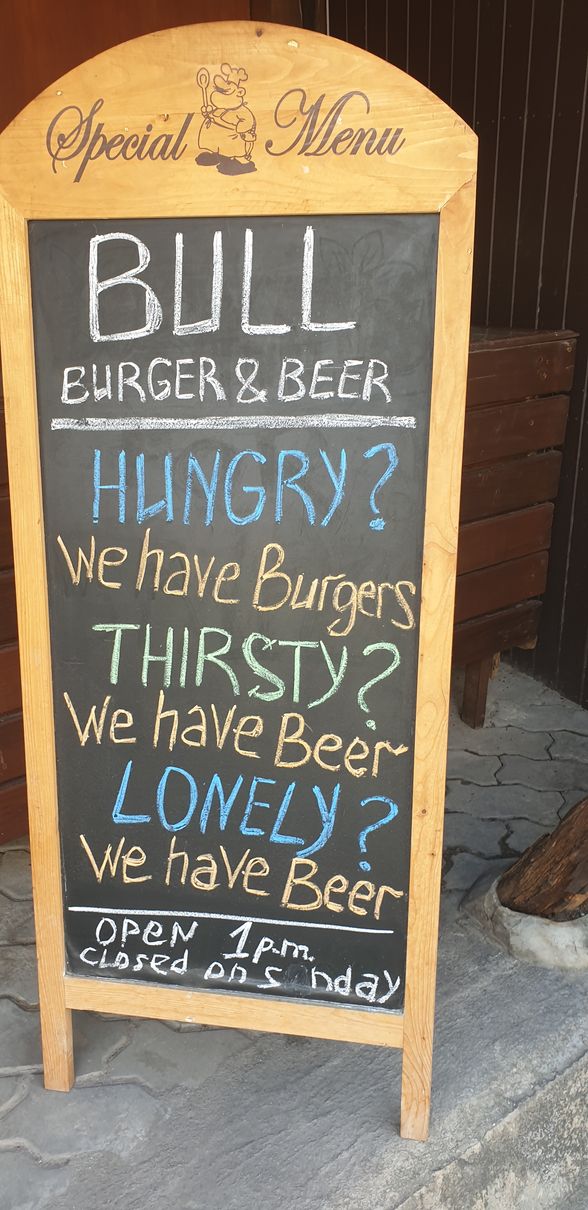 Special Menu
BULL
BURGER & BEER
HUNGRY?
We have Burgers
THIRSTY?
We have Beer
LONELY?
We have Beer
OPEN 1 p.m.
closed on s nday